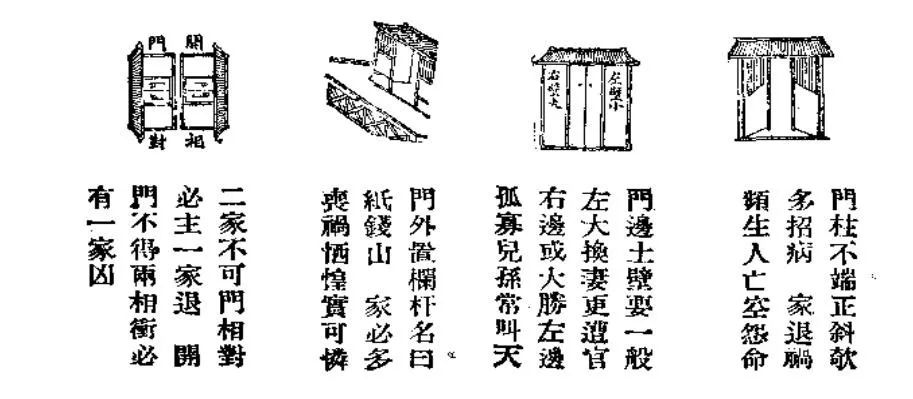 門柱不端正斜欹
多招病 家退禍
頻生人亡空怨命
左壁小
右壁大
門邊土壁要一般
左大換妻更遭官
右邊或大勝左邊
孤寡兒孫常叫天
門外置欄杆名曰
紙錢山 家必多
喪禍恓惶實可憐
開門
相對
二家不可門相對
必主一家退 開
門不得兩相衝必
有一家凶